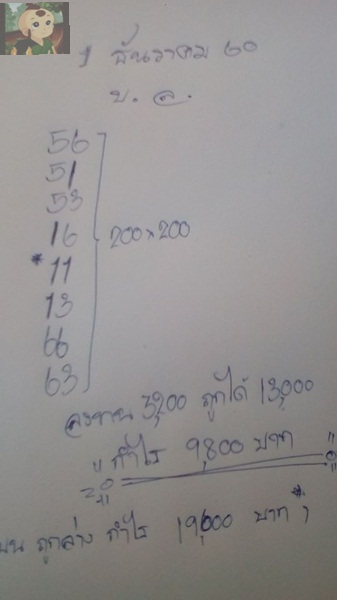 1 ธันวาคม 60
บ. ล.
56
51
53
16
*11
13
66
63
200×200
ลงทุน 3,200 ถูกได้ 13,000
" กำไร 9,800 บาท "
บน ถูกล่าง กำไร 19,600 บาท *